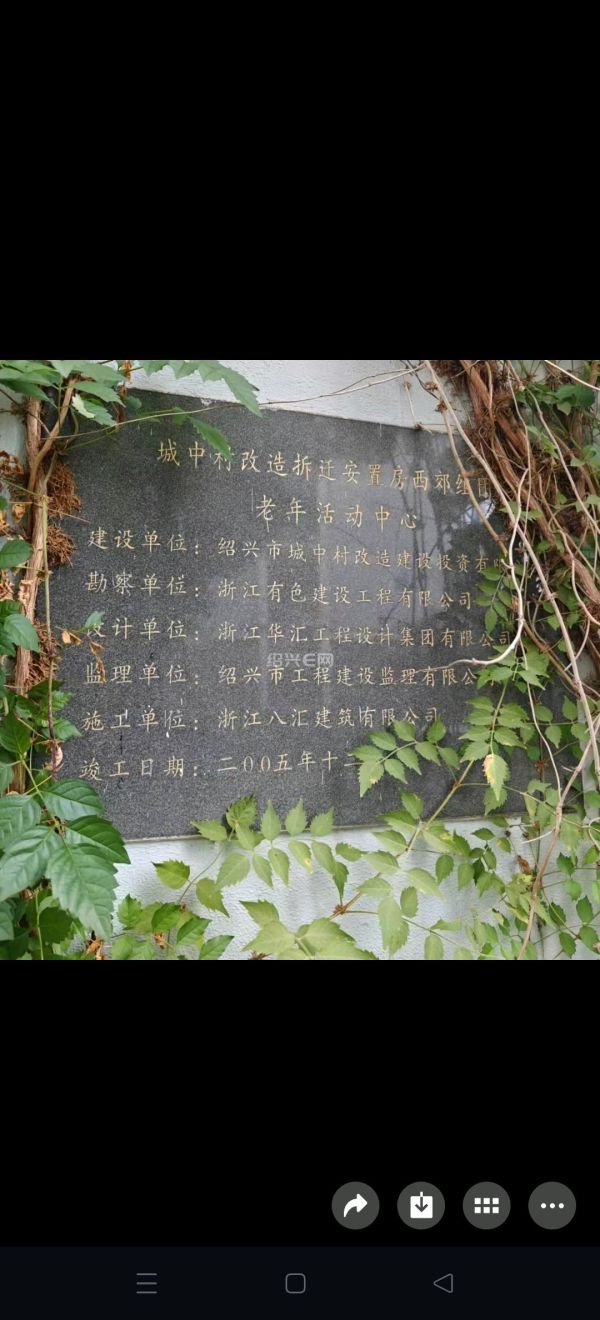 城中村改造拆迁安置房西郊组团
老年活动中心
建设单位：绍兴市城中村改造建设投资有限
勘察单位：浙江有色建设工程有限公司
设计单位：浙江华汇工程设计集团有限公司
绍兴E网
监理单位：绍兴市工程建设监理有限公
施工单位：浙江八汇建筑有限公司
竣工日期：二00五年十二